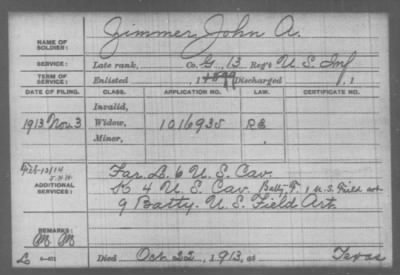 NAME OF SOLDIER: Zimmer, John A.
SERVICE: Late rank, Co. G, 13 Reg't U.S. Inf
TERM OF SERVICE: Enlisted , 1899 Discharged , 1
DATE OF FILING. CLASS. APPLICATION NO. LAW. CERTIFICATE NO.
Invalid,
1913 Nov. 3 Widow, 1016935
Minor,
Feb-13/14
ADDITIONAL SERVICES: Far L. 6 U.S. Cav.
K 4 U.S. Cav. Batty F. 1 U.S. Field Art
9 Batty. U.S. Field Art.
REMARKS:
M M
Died Oct. 22, 1913, at Texas